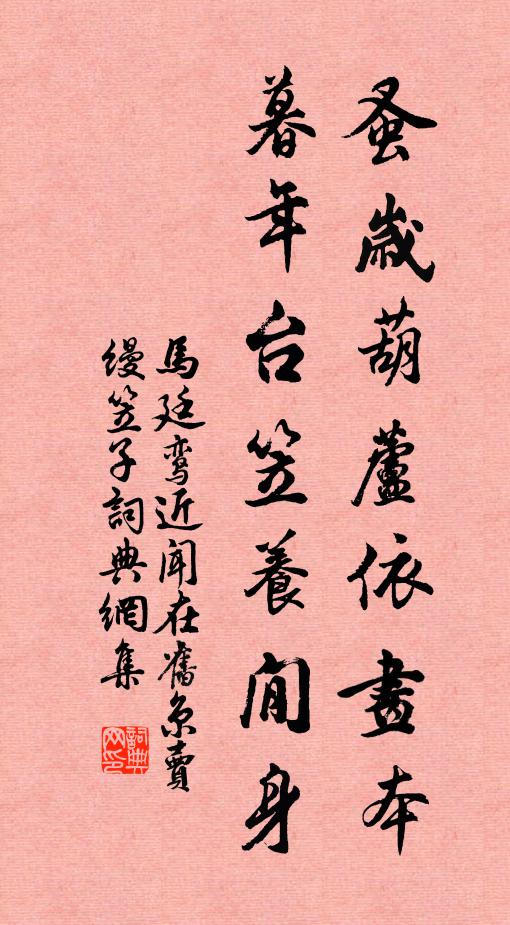 蚤歲葫蘆依畫本
暮年台笠養閒身
馬廷鸞近聞在舊京賣
縵笠子詞典網集
詞典网印